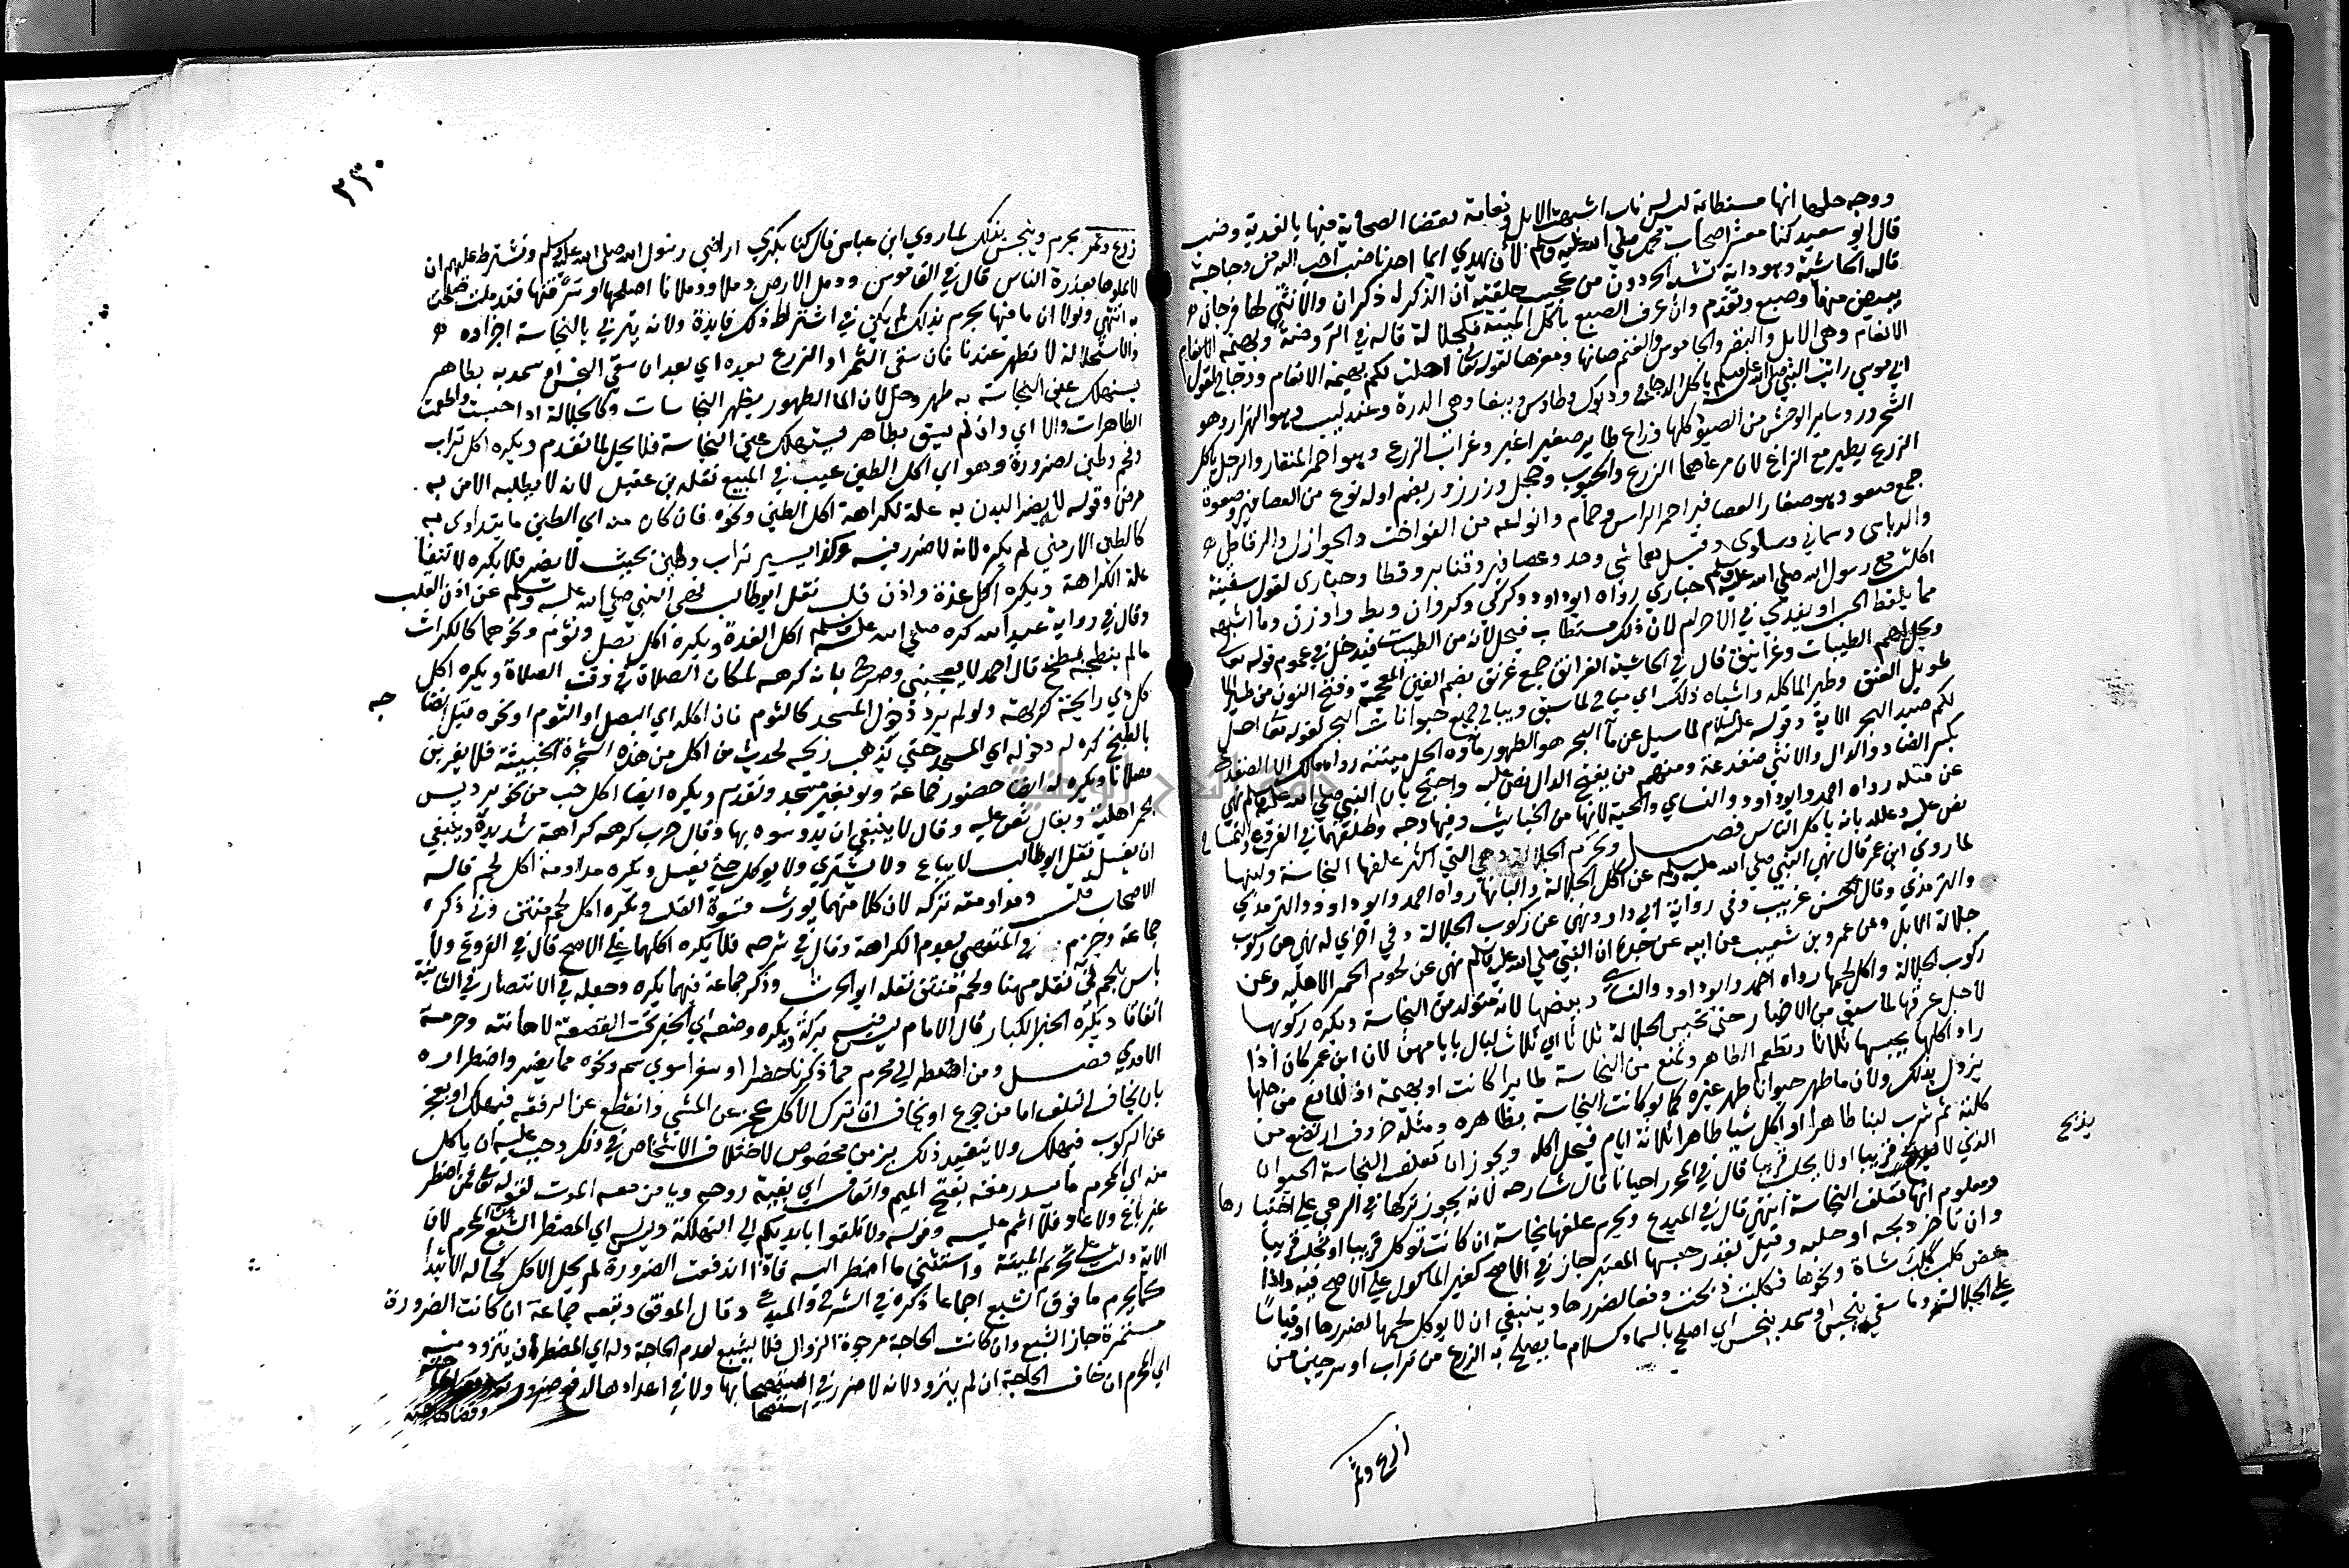 ووجه حلها انها مستطابة ليس لها ناب اشبهت الابل ونعامة لقضا الصحابة فيها بالفدية وضب
قال ابو سعيد كنا معشر اصحاب محمد صلي الله عليه وسلم لأن يهدي الي احدنا ضب احب اليه من دجاجة
قال في الحاشية وهو دابة تشبه الحردون من عجيب خلقته ان الذكر له ذكران والانثي لها فرجان
تبيض منهما وضبع وتقدم وان عرف الضبع باكل الميتة فكجلالة قاله في الروضة وبهيمة الانعام
الانعام وهي الابل والبقر والجاموس والغنم ضانها ومعزها لقوله تعالى احلت لكم بهيمة الانعام ودجاج لقول
ابي موسي رايت النبي صلي الله عليه وسلم ياكل الدجاج وديوك وطاوس وببغا وهي الدرة وعندليب وهو الهزار وهو
الشحرور وساير الوحش من الصيود كلها وزاغ طاير صغير اغبر وغراب الزرع وهو احمر المنقار والرجل ياكل
الزرع يطير مع الزاغ لان مرعاهما الزرع والحبوب وحجل وزرزور بضم اوله نوع من العصافير وصعوة
جمع صعو وهو صغار العصافير احمر الراس وحمام وانواعه من الفواخت والجوازل والرقاطي
والدباسي وسماني وسلوي وقيل هما شي واحد وعصافير وقنابر وقطا وحباري لقول سفينة
اكلت مع رسول الله صلي الله عليه وسلم حباري رواه ابو داود وكركي وكروان وبط واوز وما اشبهه
مما يلتقط الحب او يفدي في الاحرام لان ذلك مستطاب فيحل لانه من الطيبات فيدخل في عموم قوله تعالى
ويحل لهم الطيبات وغرانيق قال في الحاشية الغرانق جمع غرنق بضم الغين المعجمة وفتح النون من طير الما
طويل العنق وطير الما كله واشباه ذلك اي مباح لما سبق ويباح جميع حيوانات البحر لقوله تعالى احل
لكم صيد البحر الاية وقوله عليه السلام لما سيل عن ما البحر هو الطهور ماوه الحل ميتته رواه مالك الا الضفدع
بكسر الضاد والدال والانثي ضفدعة ومنهم من يفتح الدال نص عليه واحتج بان النبي صلي الله عليه وسلم نهي
عن قتله رواه احمد وابو داود والنساي والحية لانها من الخبايث وفيها وجه والتمساح
نص عليه وعلله بانه ياكل الناس فصل وتحرم الجلالة وهي التي اكثر علفها النجاسة ولبنها
لما روي ابن عمر قال نهي النبي صلي الله عليه وسلم عن اكل الجلالة والبانها رواه احمد وابو داود والترمذي
والترمذي وقال حسن غريب وفي رواية ابي داود نهي عن ركوب الجلالة وفي اخري له نهي عن ركوب
جلالة الابل وعن عمرو بن شعيب عن ابيه عن جده ان النبي صلي الله عليه وسلم نهي عن لحوم الحمر الاهلية وعن
ركوب الجلالة واكل لحمها رواه احمد وابو داود والنساي وبيضها لانه متولد من النجاسة ويكره ركوبها
لاجل عرقها لما سبق من الاخبار حتي تحبس الجلالة ثلاثا اي ثلاث ليال بايامهن لان ابن عمر كان اذا
اراد اكلها يحبسها ثلاثا وتطعم الطاهر وتمنع من النجاسة طايرا كانت او بهيمة اذ المانع من حلها
يزول بذلك ولان ما طهر حيوانا طهر غيره كما لو كانت النجاسة بظاهره ومثله خروف ارتضع من
كلبة ثم شرب لبنا طاهرا او اكل شيا طاهرا ثلاثة ايام فيحل اكله ويجوز ان تعلف النجاسة الحيوان
الذي لا يذبح قريبا او لا يحلب قريبا قال في المحرر احيانا قال شارحه لانه يجوز تركها في الرعي علي اختيارها
ومعلوم انها تعلف النجاسة انتهي قال في المبدع ويحرم علفها نجاسة ان كانت توكل قريبا او تحلب قريبا
وان تاخر ذبحه او حلبه وقيل بقدر حبسها المعتبر جاز في الاصح كغير الماكول علي الاصح فيه واذا
عض كلب كلب شاة ونحوها فكلبت ذبحت دفعا لضررها وينبغي ان لا يوكل لحمها لضررها او قياسا
علي الجلالة وما سقي بنجس او سمد بنجس اي اصلح بالسماد كسلام ما يصلح به الزرع من تراب او سرجين من
يذبح
زرع وثمر
٢٣٠
زرع وثمر يحرم وينجس بذلك لما روي ابن عباس قال كنا نكري اراضي رسول الله صلي الله عليه وسلم ونشترط عليهم ان
لا يدملوها بعذرة الناس قال في القاموس ودمل الارض دملا ودملانا اصلحها او سرقنها فتدملت صلحت
به انتهي ولولا ان ما فيها يحرم بذلك لم يكن في اشتراط ذلك فايدة ولانه يتربي بالنجاسة اجزاوه
والاستحالة لا تطهر عندنا فان سقي الثمر او الزرع بعده اي بعد ان سقي النجس او سمد به بطاهر
يستهلك عين النجاسة به طهر وحل لان الما الطهور يطهر النجاسات وكالجلالة اذا حبست واطعمت
الطاهرات والا اي وان لم يسق بطاهر يستهلك عين النجاسة فلا يحل لما تقدم ويكره اكل تراب
وفحم وطين لضرورة وهو اي اكل الطين عيب في المبيع نقله بن عقيل لانه لا يطلبه الا من به
مرض وقوله لانه يضر البدن به علة لكراهة اكل الطين ونحوه فان كان منه اي الطين ما يتداوي به
كالطين الارمني لم يكره لانه لا ضرر فيه وكذا يسير تراب وطين بحيث لا يضر فلا يكره لانتفا
علة الكراهة ويكره اكل غدة واذن قلب نقل ابو طالب نهي النبي صلي الله عليه وسلم عن اذن القلب
وقال في رواية عبد الله كره صلي الله عليه وسلم اكل الغدة ويكره اكل بصل وثوم ونحوهما كالكراث
ما لم ينضجه بطبخ قال احمد لا يعجبني وصرح بانه كرهه لمكان الصلاة في وقت الصلاة ويكره اكل
كل ذي رايحة كريهة ولو لم يرد دخول المسجد كالثوم فان اكله اي البصل او الثوم او نحوه قبل انضاجه
بالطبخ كره له دخوله اي المسجد حتي يذهب ريحه لحديث من اكل من هذه الشجرة الخبيثة فلا يقربن
مصلانا ويكره له ايضا حضور جماعة ولو بغير مسجد وتقدم ويكره ايضا اكل حب من نحو بر ديس
بحمر اهلية وبغال نص عليه وقال لا ينبغي ان يدوسوه بها وقال حرب كرهه كراهة شديدة وينبغي
ان يغسل نقل ابو طالب لا يباع ولا يشتري ولا يوكل حتي يغسل وتكره مداومة اكل لحم قاله
الاصحاب قلت ومداومة تركه لان كلا منهما يورث قسوة القلب ويكره اكل لحم منتن وني ذكره
جماعة وجزم في المنتهي بعدم الكراهة وقال في شرحه فلا يكره اكلها علي الاصح قال في الفروع ولا
باس بلحم ني نقله مهنا ولحم منتن نقله ابو الحرث وذكر جماعة فيهما يكره وجعله في الانتصار في الثانية
اتفاقا ويكره الخبز الكبار قال الامام ليس فيه بركة ويكره وضعه اي الخبز تحت القصعة لاهانته وحرمه
الامدي فصل ومن اضطر الي محرم مما ذكرنا حضرا او سفرا سوي سم ونحوه مما يضر واضطراره
بان يخاف التلف اما من جوع او يخاف ان ترك الاكل عجز عن المشي وانقطع عن الرفقة فيهلك او يعجز
عن الركوب فيهلك ولا يتقيد ذلك بزمن مخصوص لاختلاف الاشخاص في ذلك وجب عليه ان ياكل
منه اي المحرم ما يسد رمقه بفتح الميم والقاف اي بقية روحه ويامن معه الموت لقوله تعالى فمن اضطر
غير باغ ولا عاد فلا اثم عليه وقوله ولا تلقوا بايديكم الي التهلكة وليس اي المضطر الشبع من المحرم لان
الاية دلت علي تحريم الميتة واستثني ما اضطر اليه فاذا اندفعت الضرورة لم يحل الاكل كحالة الابتدا
كما يحرم ما فوق الشبع اجماعا ذكره في الشرح والمبدع وقال الموفق وتبعه جماعة ان كانت الضرورة
مستمرة جاز الشبع وان كانت الحاجة مرجوة الزوال فلا يشبع لعدم الحاجة وله اي المضطر ان يتزود منه
اي المحرم ان خاف الحاجة ان لم يتزود لانه لا ضرر في استصحابها ولا في اعدادها لدفع ضرورته
استصحا